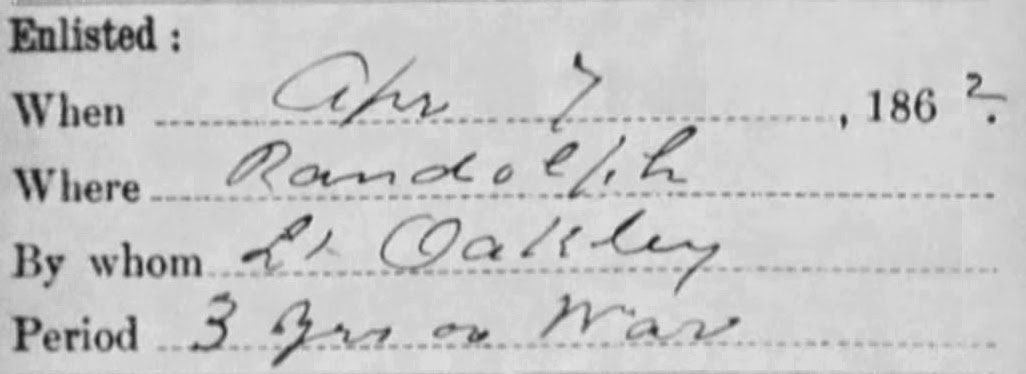 Enlisted :
When Apr 7, 1862.
Where Randolph
By whom Lt Oakley
Period 3 yrs or War